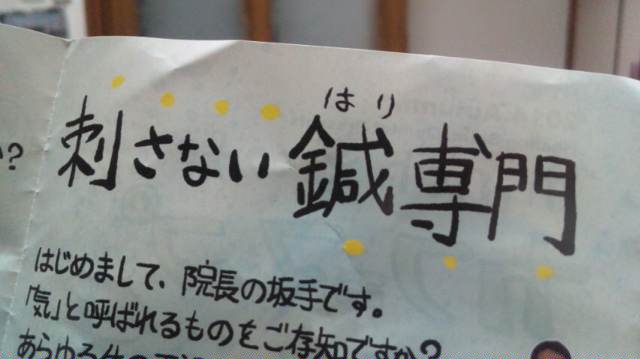 はり
刺さない鍼専門
か?
はじめまして、院長の坂手です。
「気」と呼ばれるものをご存知ですか?